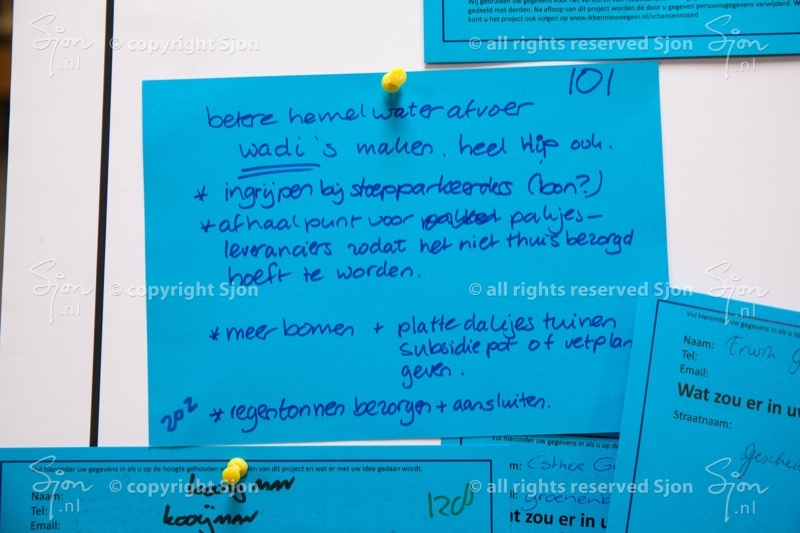 Wij gebruiken uw gegevens voor het versturen van
gedeeld met derden. Na afloop van dit project worden de door u gegeven persoonsgegevens verwijderd.
kunt u het project ook volgen op www.ikbennieuwegein.nl/schansennoord
101
betere hemelwaterafvoer
wadi's maken. heel Hip ook.
* ingrijpen bij stoepparkeerders (bon?)
* afhaalpunt voor pakjes-
leveranciers zodat het niet thuis bezorgd
hoeft te worden.
* meer bomen + platte dakjes tuinen
subsidie pot of vetplan
geven.
202 * regentonnen bezorgen + aansluiten.
Vul hieronder uw gegevens in
Naam: Erwin G
Tel:
Email:
Wat zou er in u
Straatnaam:
Vul hieronder uw gegevens in als u op de hoogte gehouden van dit project en wat er met uw idee gedaan wordt.
Naam: kooijman
Tel: kooijman
Email:
120
Vul hieronder uw gegevens in als u op
m: Esther G
groenenb
t zou er in u
Sjon.nl
© copyright Sjon
© all rights reserved Sjon
Sjon.nl
Sjon.nl
© copyright Sjon
© all rights reserved Sjon
Sjon.nl
Sjon.nl
© copyright Sjon
© all rights reserved Sjon
Sjon.nl